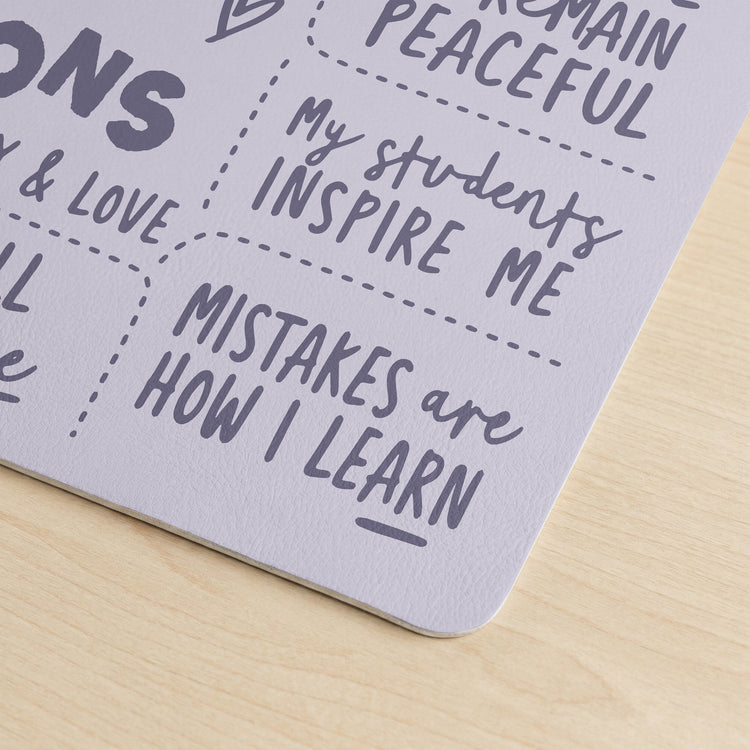 REMAIN
PEACEFUL
ONS
Y & LOVE
My students
INSPIRE ME
LL
e
MISTAKES are
HOW I LEARN